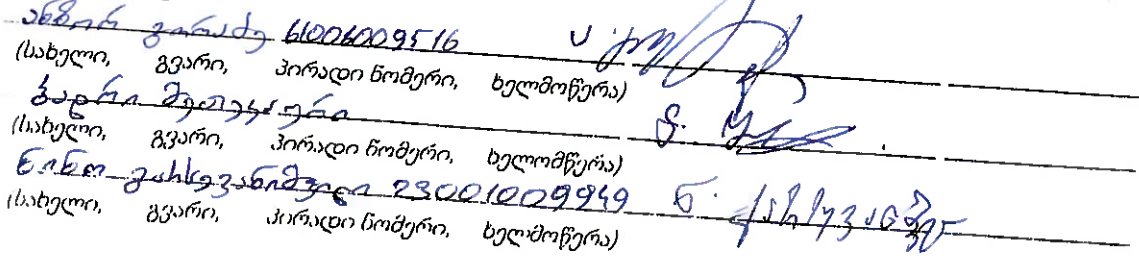 ანზორ გორაძე 61006009516
(სახელი, გვარი, პირადი ნომერი, ხელმოწერა)
ბადრი
(სახელი, გვარი, პირადი ნომერი, ხელომწერა)
ნინო გარსევანიშვილი 23001009949 ნ.
(სახელი, გვარი, პირადი ნომერი, ხელმოწერა)